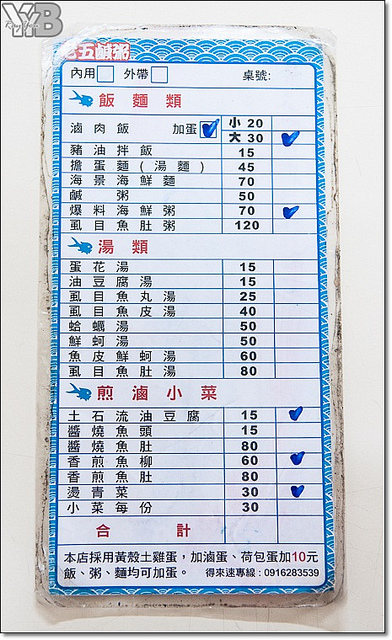 YB
五鹹粥
內用 外帶 桌號:
飯麵類
滷肉飯 加蛋 小 20
大 30
豬油拌飯 15
擔蛋麵(湯麵) 45
海景海鮮麵 70
鹹粥 50
爆料海鮮粥 70
虱目魚肚粥 120
湯類
蛋花湯 15
油豆腐湯 15
虱目魚丸湯 25
虱目魚皮湯 40
蛤蠣湯 50
鮮蚵湯 50
魚皮鮮蚵湯 60
虱目魚肚湯 80
煎滷小菜
土石流油豆腐 15
醬燒魚頭 15
醬燒魚肚 80
香煎魚柳 60
香煎魚肚 80
燙青菜 30
小菜每份 30
合計
本店採用黃殼土雞蛋,加滷蛋、荷包蛋加10元
飯、粥、麵均可加蛋。 得來速專線:0916283539